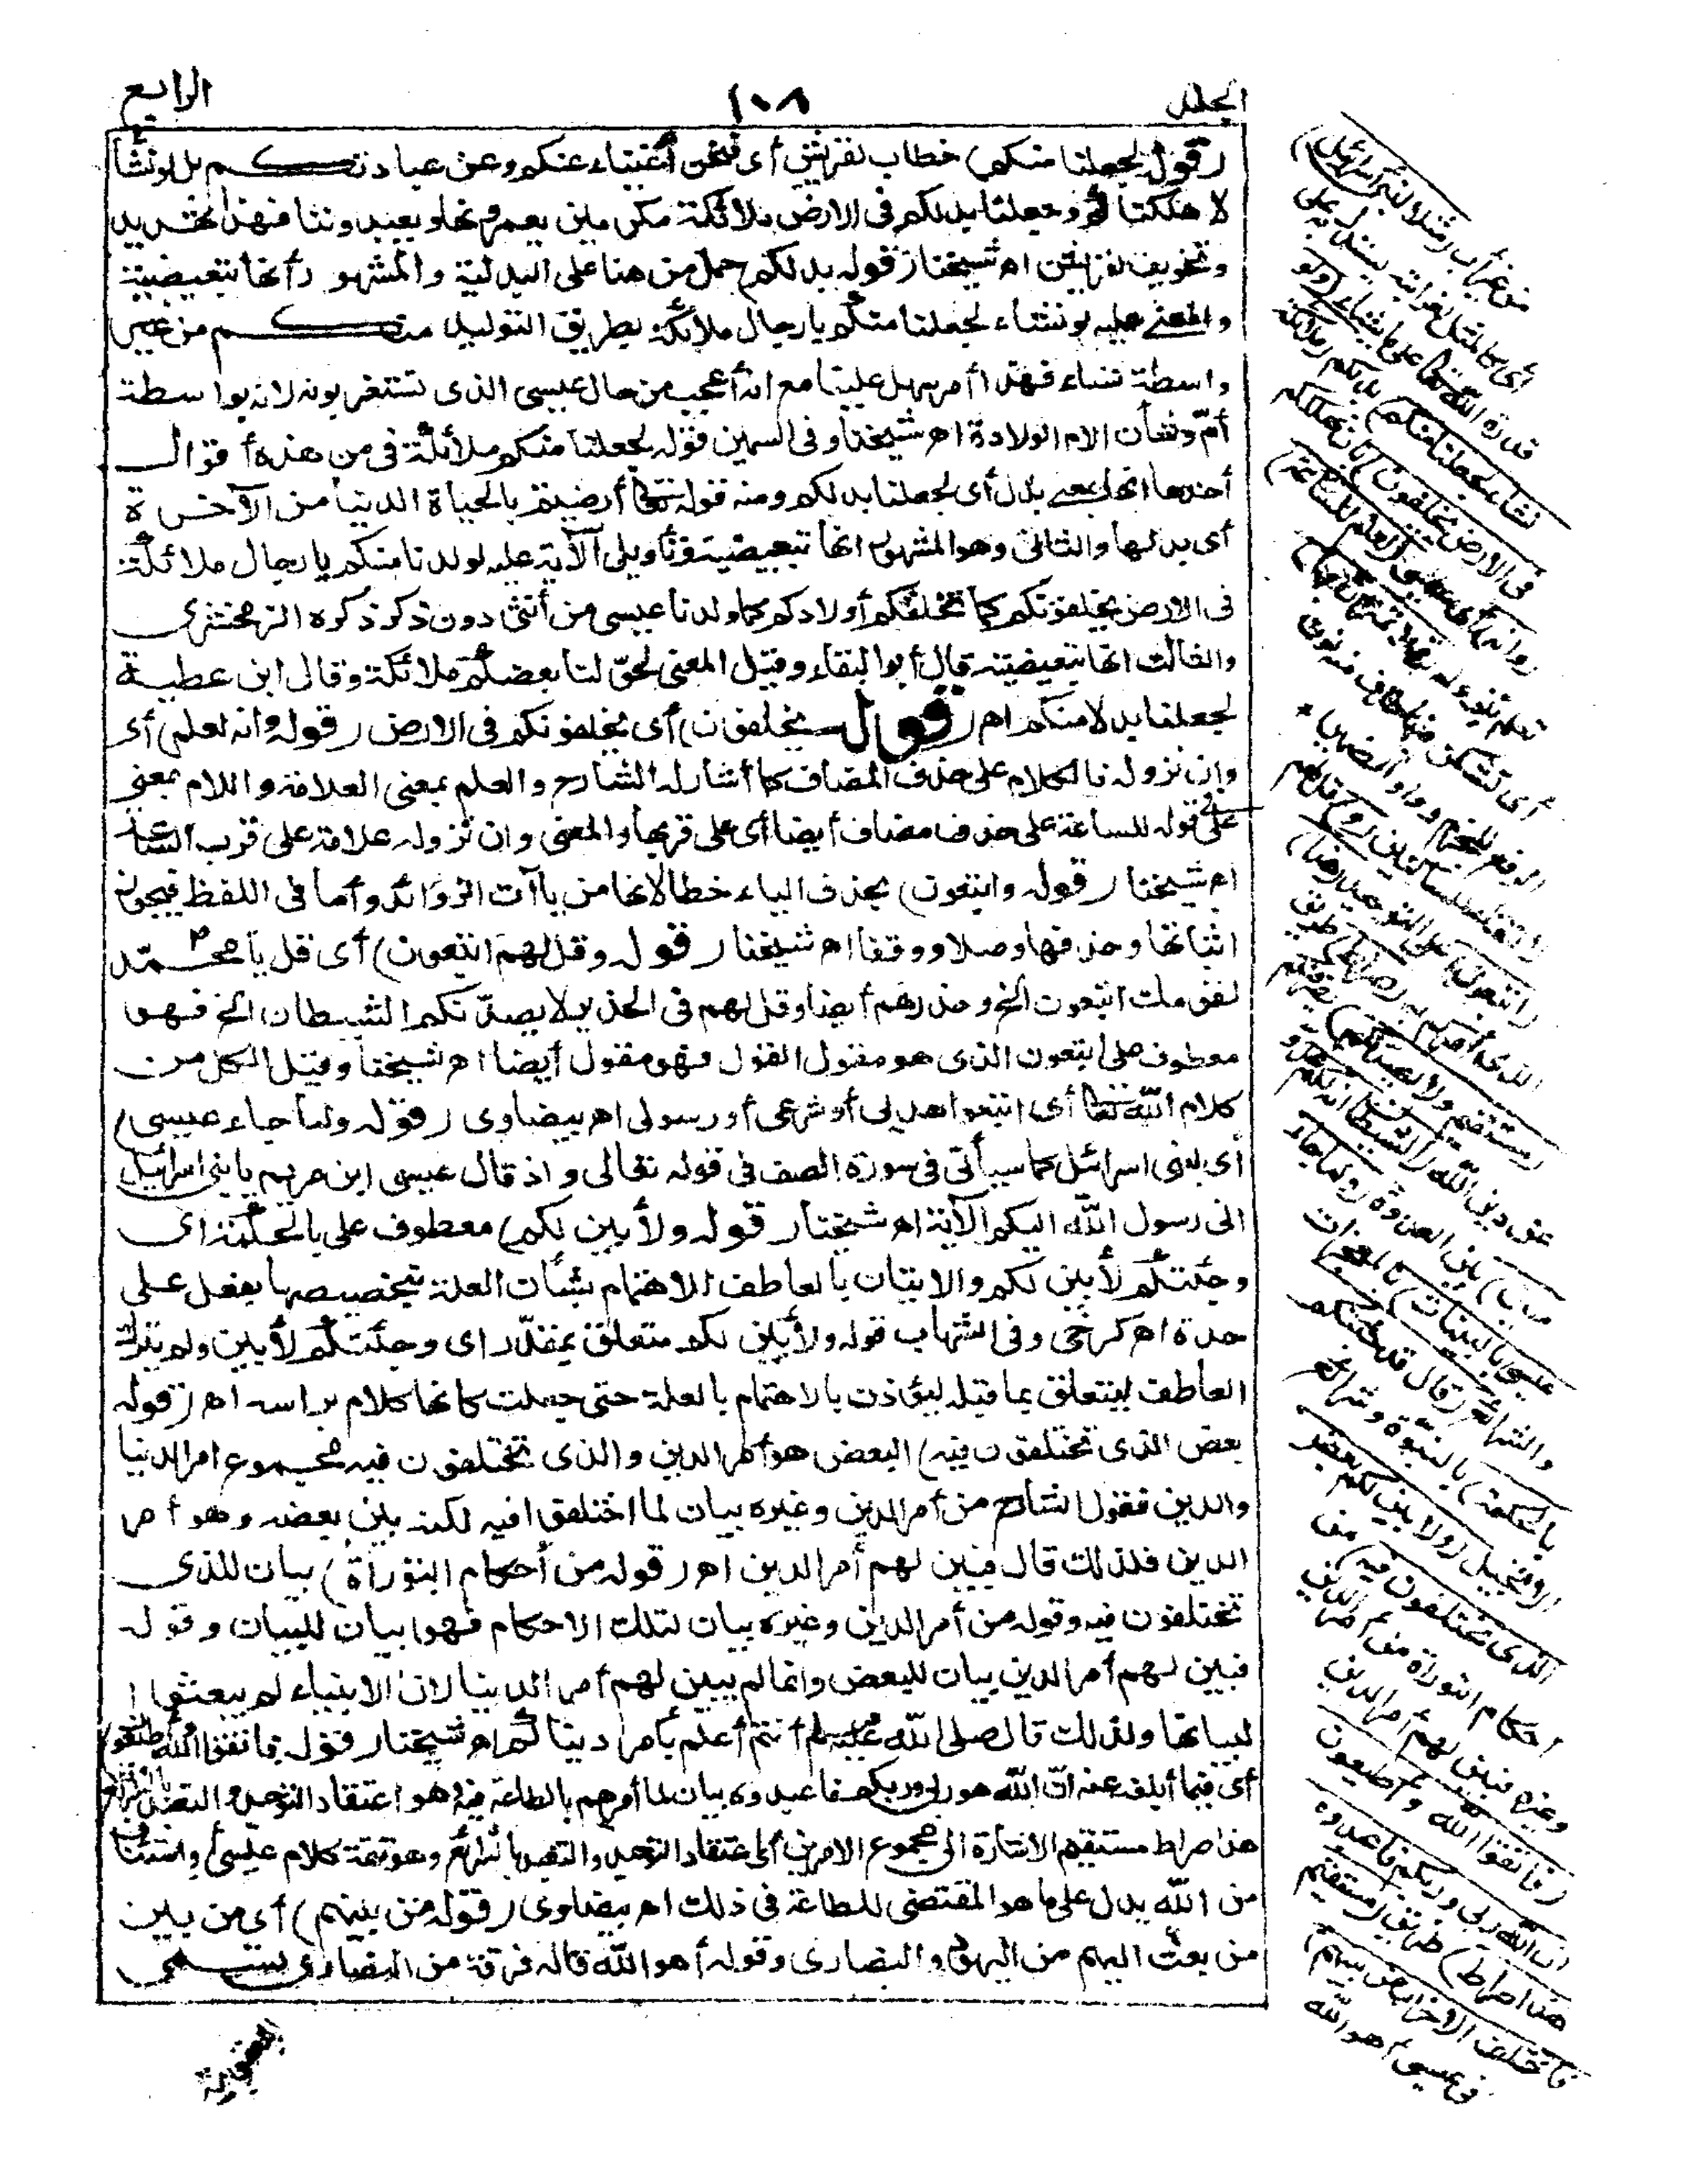 الجلد
١٠٨
الرابع
(قوله لجعلنا منكم) خطاب لقريش أي فنحن أغنياء عنكم وعن عبادتكم بل لو نشاء
لاهلكناكم وجعلنا بدلكم في الارض ملائكة مكرمين يعمرونها ويعبدوننا فهذا تهديد
وتخويف لقريش اه شيخنا (قوله بدلكم) حمل من هنا على البدلية والمشهور أنها تبعيضية
والمعنى عليه لو نشاء لجعلنا منكم يا رجال ملائكة بطريق التوليد منكم من غير
واسطة نساء فهذا أمر سهل علينا مع انه أعجب من حال عيسى الذي تستغربونه لانه بواسطة
أم وشأن الام الولادة اه شيخنا وفي السمين قوله لجعلنا منكم ملائكة في من هذه أقوال
أحدها انها بمعنى بدل أي لجعلنا بدلكم ومنه قوله تعالى أرضيتم بالحياة الدنيا من الآخرة
أي بدلها والثاني وهو المشهور انها تبعيضية وتأويل الآية عليه لولدنا منكم يا رجال ملائكة
في الارض يخلفونكم كما تخلفكم أولادكم كما ولدنا عيسى من أنثى دون ذكر ذكره الزمخشري
والثالث انها تبعيضية قال أبو البقاء وقيل المعنى لحول لنا بعضكم ملائكة وقال ابن عطية
لجعلنا بدلا منكم اه (قوله يخلفون) أي يخلفونكم في الارض (قوله وانه لعلم) أي
وان نزوله فالكلام على حذف المضاف كما أشار له الشارح والعلم بمعنى العلامة واللام بمعنى
على في قوله للساعة على حذف مضاف أيضا أي على قربها والمعنى وان نزوله علامة على قرب الساعة
اه شيخنا (قوله واتبعون) بحذف الياء خطا لانها من ياآت الزوائد وأما في اللفظ فيجوز
اثباتها وحذفها وصلا ووقفا اه شيخنا (قوله وقل لهم اتبعون) أي قل يا محمد
لقومك اتبعون الخ وحذرهم أيضا وقل لهم في الحذير لا يصدنكم الشيطان الخ فهو
معطوف على اتبعون الذي هو مقول القول فهو مقول أيضا اه شيخنا وقيل الكل من
كلام الله تعالى أي اتبعوا هداي أو شرعي أو رسولي اه بيضاوي (قوله ولما جاء عيسى)
أي لبني اسرائيل كما سيأتي في سورة الصف في قوله تعالى واذ قال عيسى ابن مريم يا بني اسرائيل
اني رسول الله اليكم الآية اه شيخنا (قوله ولأبين لكم) معطوف على بالحكمة أي
وجئتكم لأبين لكم والاتيان بالعاطف للاهتمام بشأن العلة تخصيصها بفعل على
حدة اه كرخي وفي الشهاب قوله ولأبين لكم متعلق بمقدر أي وجئتكم لأبين ولم يترك
العاطف ليتعلق بما قبله ليؤذن بالاهتمام بالعلة حتى جعلت كانها كلام برأسه اه (قوله
بعض الذي تختلفون فيه) البعض هو أمر الدين والذي تختلفون فيه مجموع أمر الدنيا
والدين فقول الشارح من أمر الدين وغيره بيان لما اختلفوا فيه لكنه بين بعضه وهو أمر
الدين فلذلك قال فبين لهم أمر الدين اه (قوله من أحكام التوراة) بيان للذي
تختلفون فيه وقوله من أمر الدين وغيره بيان لتلك الاحكام فهو بيان للبيان وقوله
فبين لهم أمر الدين بيان للبعض وانما لم يبين لهم أمر الدنيا لان الانبياء لم يبعثوا
لبيانها ولذلك قال صلى الله عليه وسلم أنتم أعلم بأمر دنياكم اه شيخنا (قوله فاتقوا الله وأطيعون)
أي فيما أبلغه عنه ان الله هو ربي وربكم فاعبدوه بيان لما أمرهم بالطاعة فيه وهو اعتقاد التوحيد والتعبد بالشرائع
هذا صراط مستقيم الاشارة الى مجموع الامرين أي اعتقاد التوحيد والتعبد بالشرائع وهو تتمة كلام عيسى أو استئناف
من الله يدل على ما هو المقتضى للطاعة في ذلك اه بيضاوي (قوله من بينهم) أي من بين
من بعث اليهم من اليهود والنصارى وقوله أهو الله قاله فرقة من النصارى تسمى
اليعقوبية
من غير أب (مثلا لبني اسرائيل)
أي كالمثل لغرابته يستدل به على
قدرة الله تعالى على ما يشاء (ولو
نشاء لجعلنا منكم) بدلكم (ملائكة
في الارض يخلفون) بأن نهلككم
(وانه) أي عيسى (لعلم للساعة)
تعلم بنزوله (فلا تمترن بها)
أي تشكن فيها حذف منه نون
الرفع للجزم وواو الضمير
لالتقاء الساكنين (و) قل لهم
(اتبعون) على التوحيد (هذا)
الذي آمركم به (صراط) طريق
(مستقيم ولا يصدنكم) يصرفنكم
عن دين الله (الشيطان انه لكم عدو
مبين) بين العداوة (ولما جاء
عيسى بالبينات) بالمعجزات
والشرائع (قال قد جئتكم
بالحكمة) بالنبوة وشرائع
الانجيل (ولأبين لكم بعض
الذي تختلفون فيه) من
أحكام التوراة من أمر الدين
وغيره فبين لهم أمر الدين
(فاتقوا الله وأطيعون
ان الله ربي وربكم فاعبدوه
هذا صراط) طريق (مستقيم
فاختلف الاحزاب من بينهم)
في عيسى أهو الله